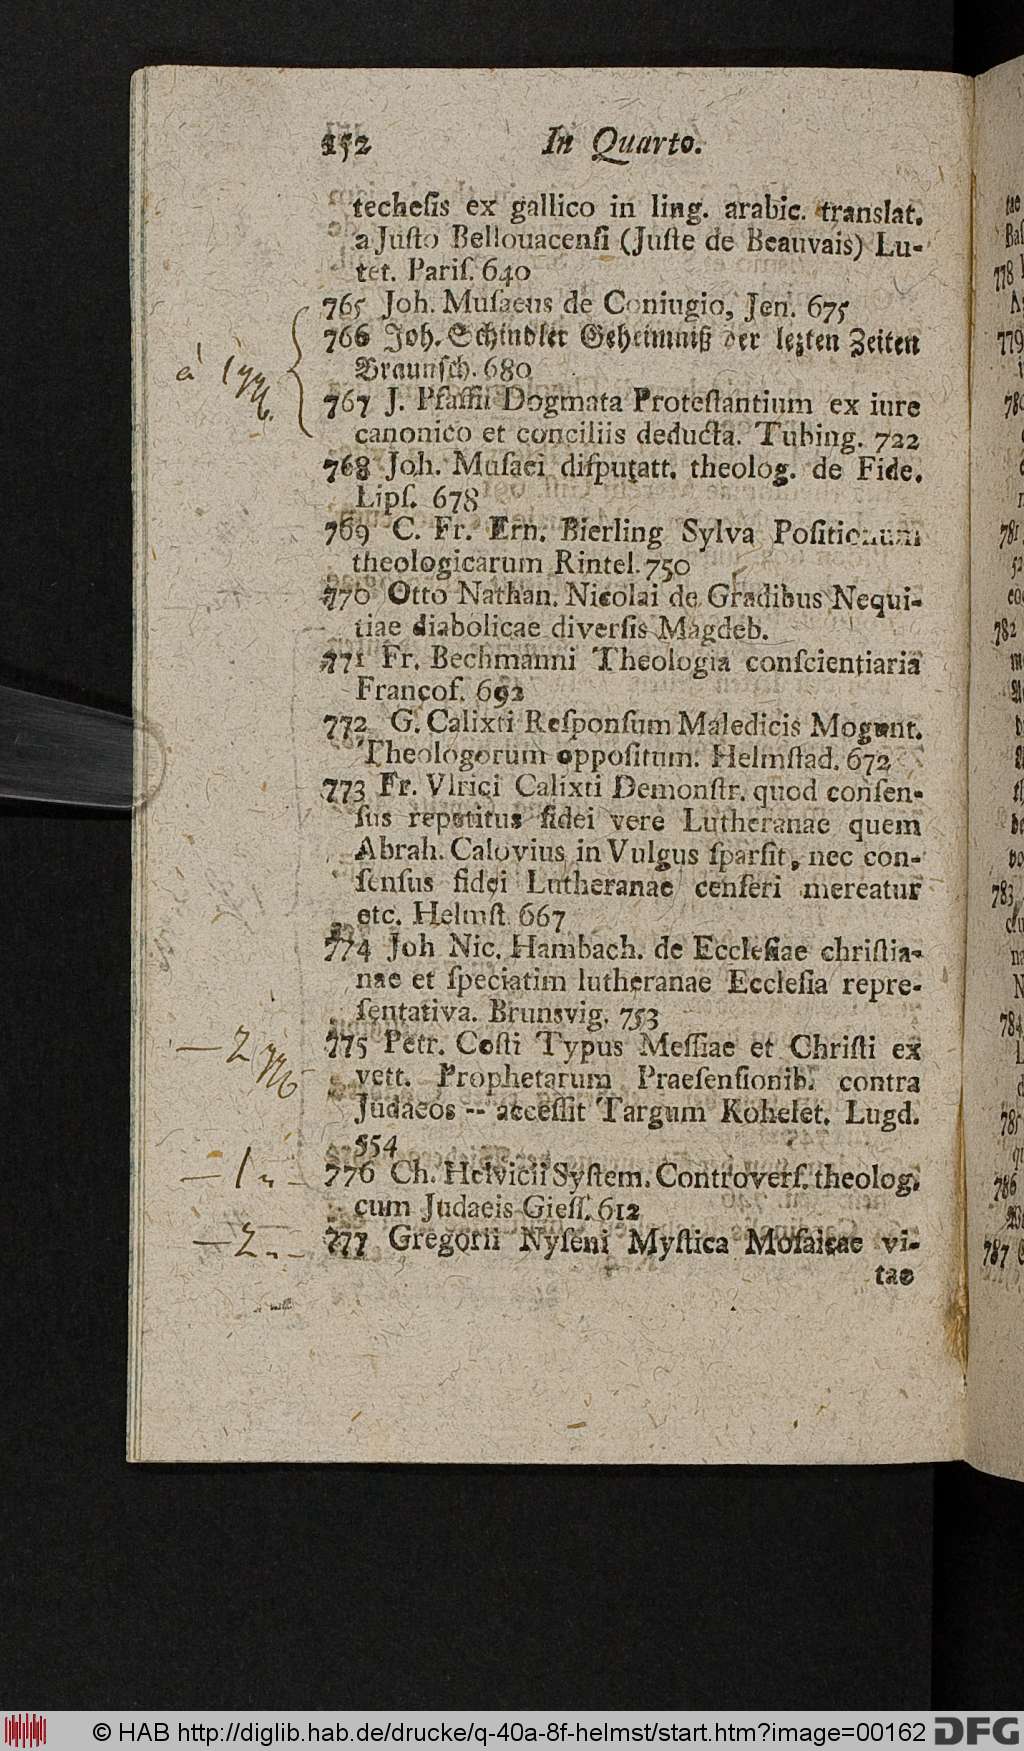 152 In Quarto.
techesis ex gallico in ling. arabic. translat.
a Justo Bellouacensi (Juste de Beauvais) Lu-
tet. Paris. 640
765 Joh. Musaeus de Coniugio, Jen. 675
766 Joh. Schindler Geheimniß der lezten Zeiten
Braunsch. 680
à 1
767 J. Pfaffii Dogmata Protestantium ex iure
canonico et conciliis deducta. Tubing. 722
768 Joh. Musaei disputatt. theolog. de Fide.
Lips. 678
769 C. Fr. Ern. Bierling Sylva Positionum
theologicarum Rintel. 750
770 Otto Nathan. Nicolai de Gradibus Nequi-
tiae diabolicae diversis Magdeb.
771 Fr. Bechmanni Theologia conscientiaria
Francof. 692
772 G. Calixti Responsum Maledicis Mogunt.
Theologorum oppositum. Helmstad. 672
773 Fr. Vlrici Calixti Demonstr. quod consen-
sus repetitus fidei vere Lutheranae quem
Abrah. Calovius in Vulgus sparsit, nec con-
sensus fidei Lutheranae censeri mereatur
etc. Helmst. 667
774 Joh Nic. Hambach. de Ecclesiae christia-
nae et speciatim lutheranae Ecclesia repre-
sentativa. Brunsvig. 753
— 2
775 Petr. Costi Typus Messiae et Christi ex
vett. Prophetarum Praesensionib. contra
Judaeos -- accessit Targum Kohelet. Lugd.
554
— 1 „ —
776 Ch. Helvicii System. Controvers. theolog.
cum Judaeis Giess. 612
— 2 „ —
777 Gregorii Nyseni Mystica Mosaicae vi-
tae
© HAB http://diglib.hab.de/drucke/q-40a-8f-helmst/start.htm?image=00162 DFG